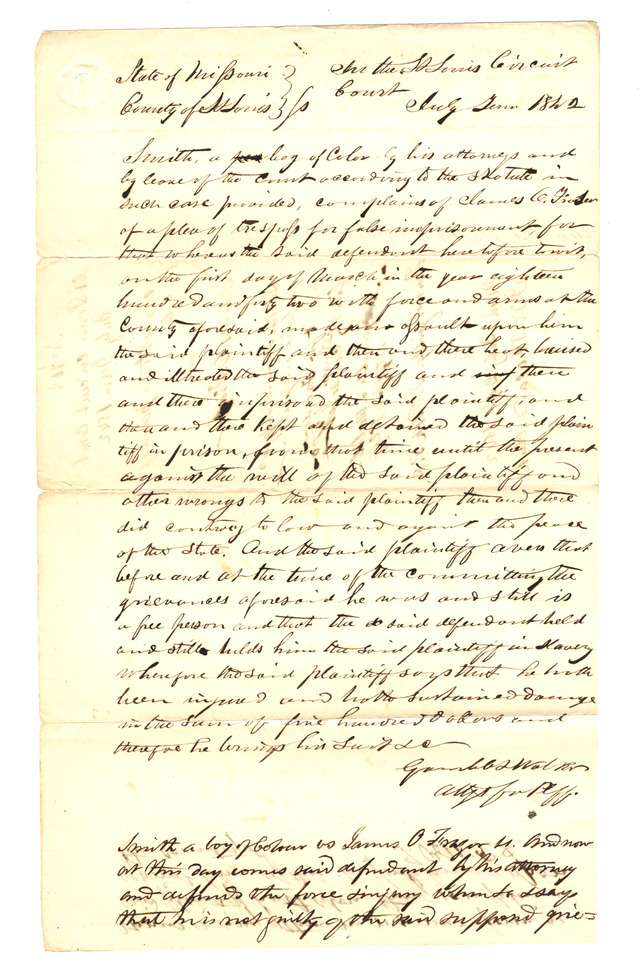 State of Missouri } In the St Louis Circuit
County of St Louis } Ss Court
July Term 1842
Smith, a boy of Color by his attorneys and
by leave of the court according to the statute in
such case provided, complains of James C. Frazer
of a plea of trespass for false imprisonment, for
that whereas the said defendant heretofore towit,
on the first day of March in the year eighteen
hundred and forty two with force and arms at the
County aforesaid, made an assault upon him
the said plaintiff and then and there beat, bruised
and illtreated the said plaintiff and then
and there imprisoned the said plaintiff, and
then and there kept and detained the said plain
tiff in prison, from that time until the present
against the will of the said plaintiff and
other wrongs to the said plaintiff then and there
did contrary to law and against the peace
of the State. And the said plaintiff avers that
before and at the time of the committing the
grievances aforesaid he was and still is
a free person and that the said defendant held
and still holds him the said plaintiff in slavery
Wherefore the said plaintiff says that he hath
been injured and hath sustained damage
in the sum of five hundred Dollars and
therefore he brings his suit &c
Gamble & Walker
Attys for Plff.
Smith a boy of Colour vs James O Frazor And now
at this day comes said defendant by his attorney
and defends the force & injury when &c & says
that he is not guilty of the said supposed grie=